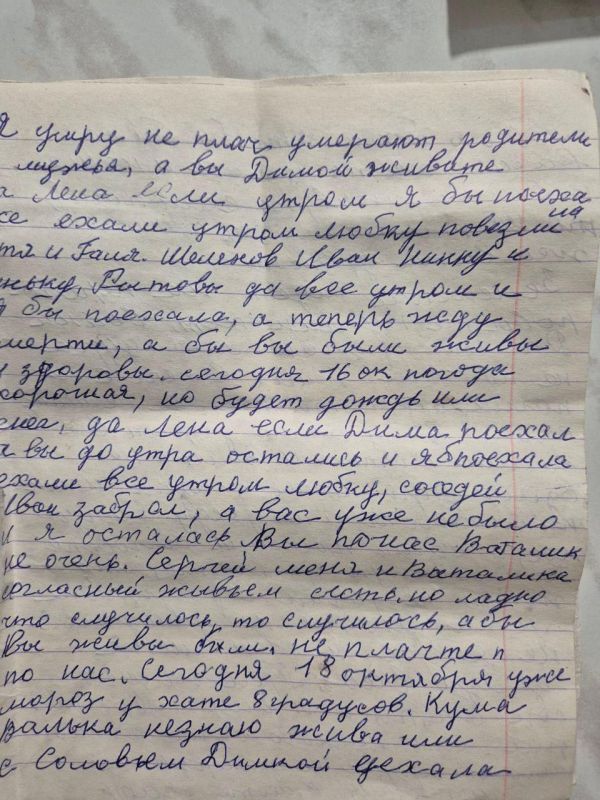 Я умру не плач умерают родители
мужья, а вы Димой живите
а Лена если утром я бы поеха
се ехали утром любку повезли на
тя и Галя. Шеленов Иван Нинку и
нька, Рытовы да все утром и
я бы поехала, а теперь жду
мерти, а бы вы были живы
и здоровы. сегодня 16 ок погода
хорошая, но будет дождь или
снег, да Лена если Дима поехал
а вы до утра остались и я б поехала
ехали все утром любку, соседей
Иван забрал, а вас уже не было
и я осталась Вы по нас Ваталик
не очень. Сергей меня и Ваталика
огласный живьем сесть, но ладно
что случилось, то случилось, абы
Вы живы были. не плачте п
по нас. Сегодня 18 октября уже
мороз у хате 8 градусов. Кума
Валька незнаю жива или
с Соловьем Димкой уехала